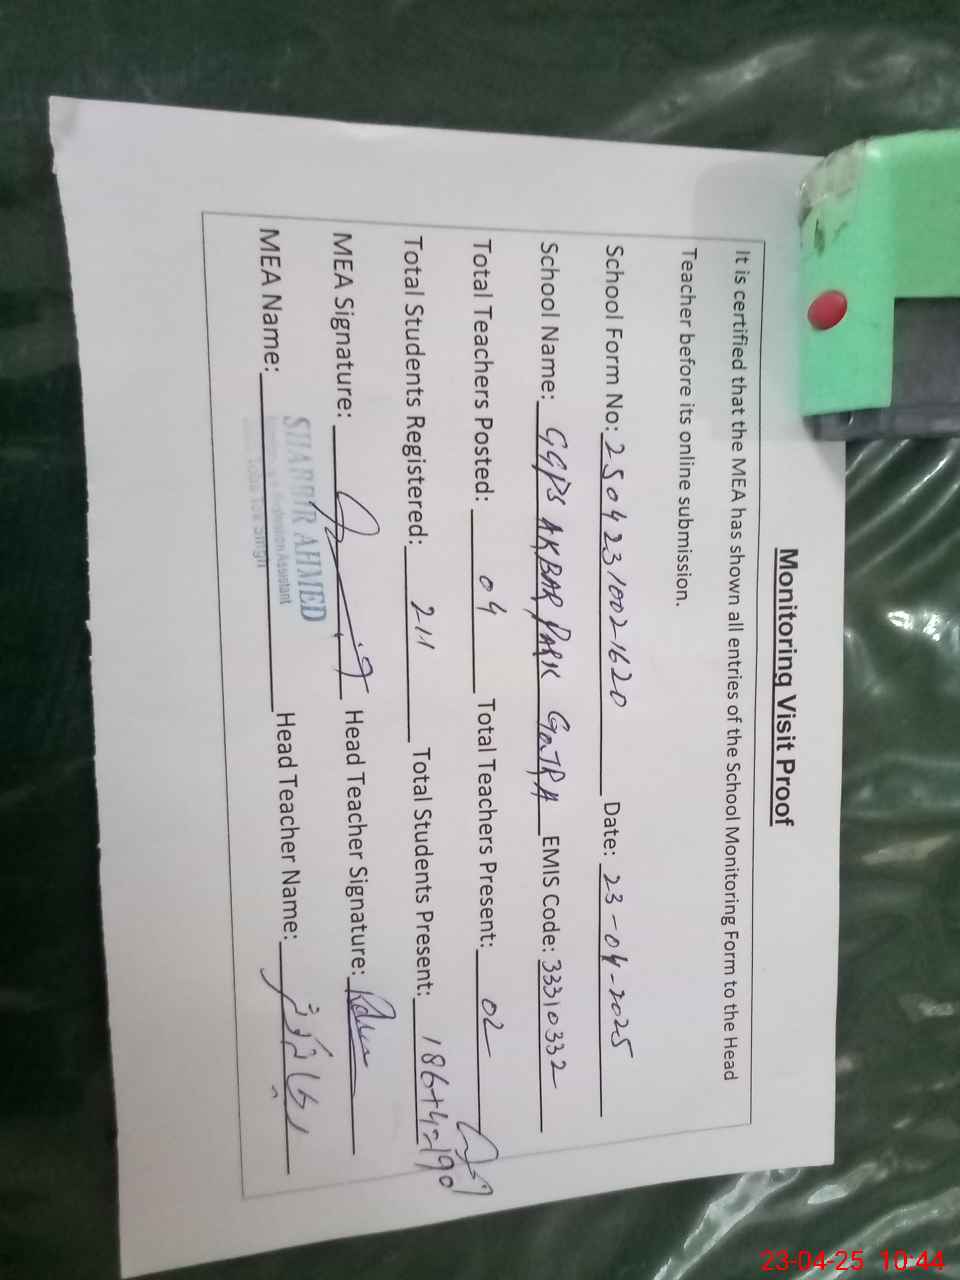 Monitoring Visit Proof
It is certified that the MEA has shown all entries of the School Monitoring Form to the Head
Teacher before its online submission.
School Form No: 25042310021620 Date: 23-04-2025
School Name: GGPS AKBAR PARK GOJRA EMIS Code: 33310332
Total Teachers Posted: 04 Total Teachers Present: 02
Total Students Registered: 211 Total Students Present: 186+4=190
MEA Signature: Head Teacher Signature:
SHABBIR AHMED
MEA Name: Head Teacher Name:
Assistant
23-04-25 10:44